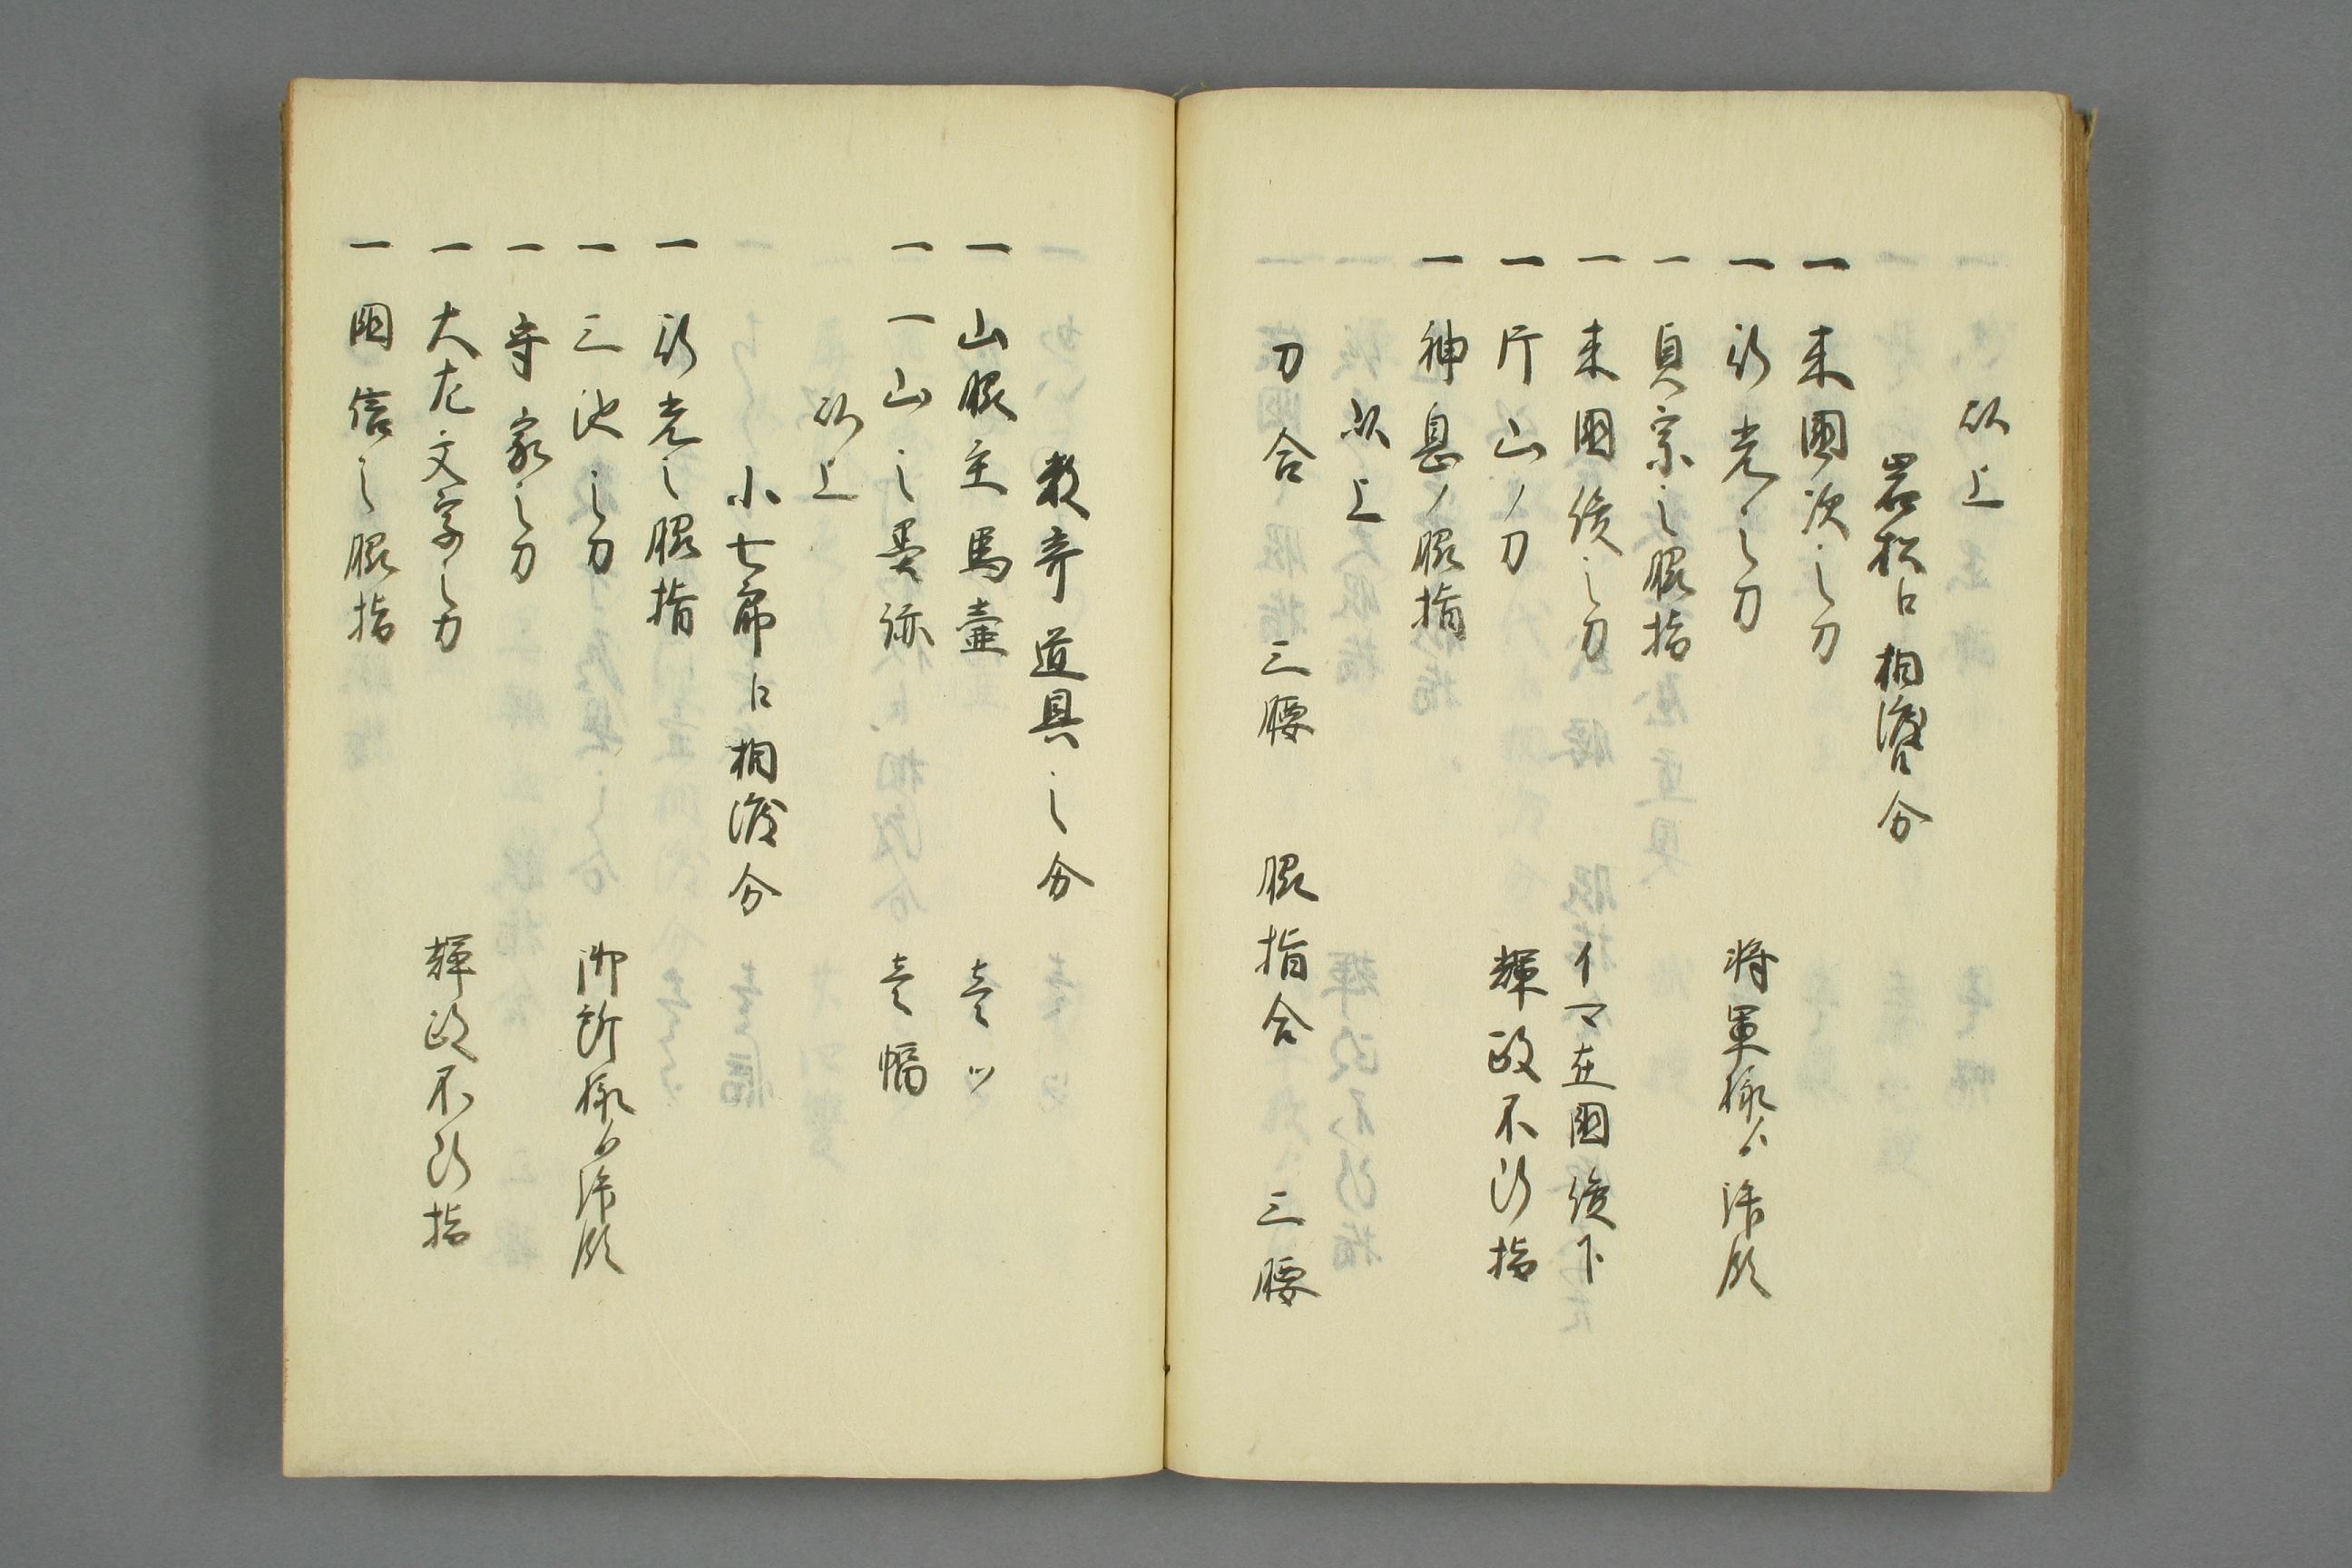 以上
岩松ニ相渡分
一 来國次之刀
一 行光之刀 将軍様ゟ拝領
一 貞宗之脇指
一 来国俊之刀 イマ在国俊下
一 片山ノ刀 輝政不断指
一 神息ノ脇指
以上
刀合 三腰 脇指合 三腰
数寄道具之分
一 山脇主馬壷 壱ツ
一 一山之墨跡 壱幅
以上
小七郎ニ相渡分
一 行光之脇指
一 三池之刀 御所様ゟ拝領
一 守家之刀
一 大左文字之刀 輝政不断指
一 国信之脇指